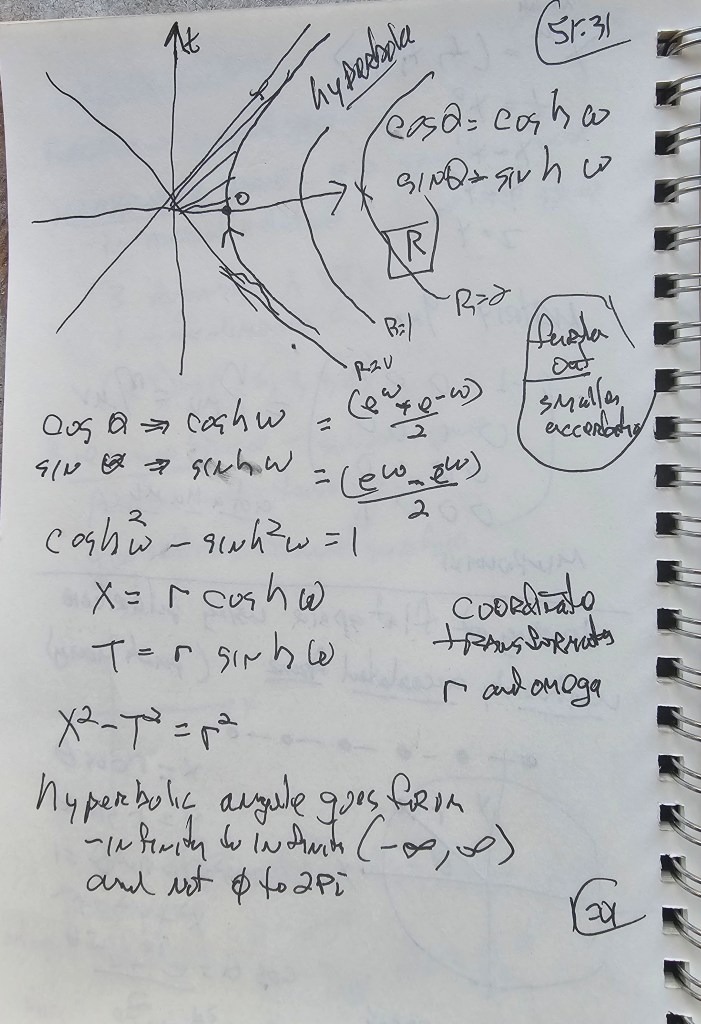 51:31
t
hyperbola
cosθ = cosh ω
sinθ = sinh ω
R
R=2
R=1
further
out
smaller
acceleratio
cos θ ⇒ cosh ω = (e^ω + e^-ω)/2
sin θ ⇒ sinh ω = (e^ω - e^-ω)/2
cosh²ω - sinh²ω = 1
X = r cosh ω
T = r sinh ω
coordinate
transformates
r and omega
X² - T² = r²
hyperbolic angle goes from
-infinity to infinite (-∞, ∞)
and not φ to 2Pi